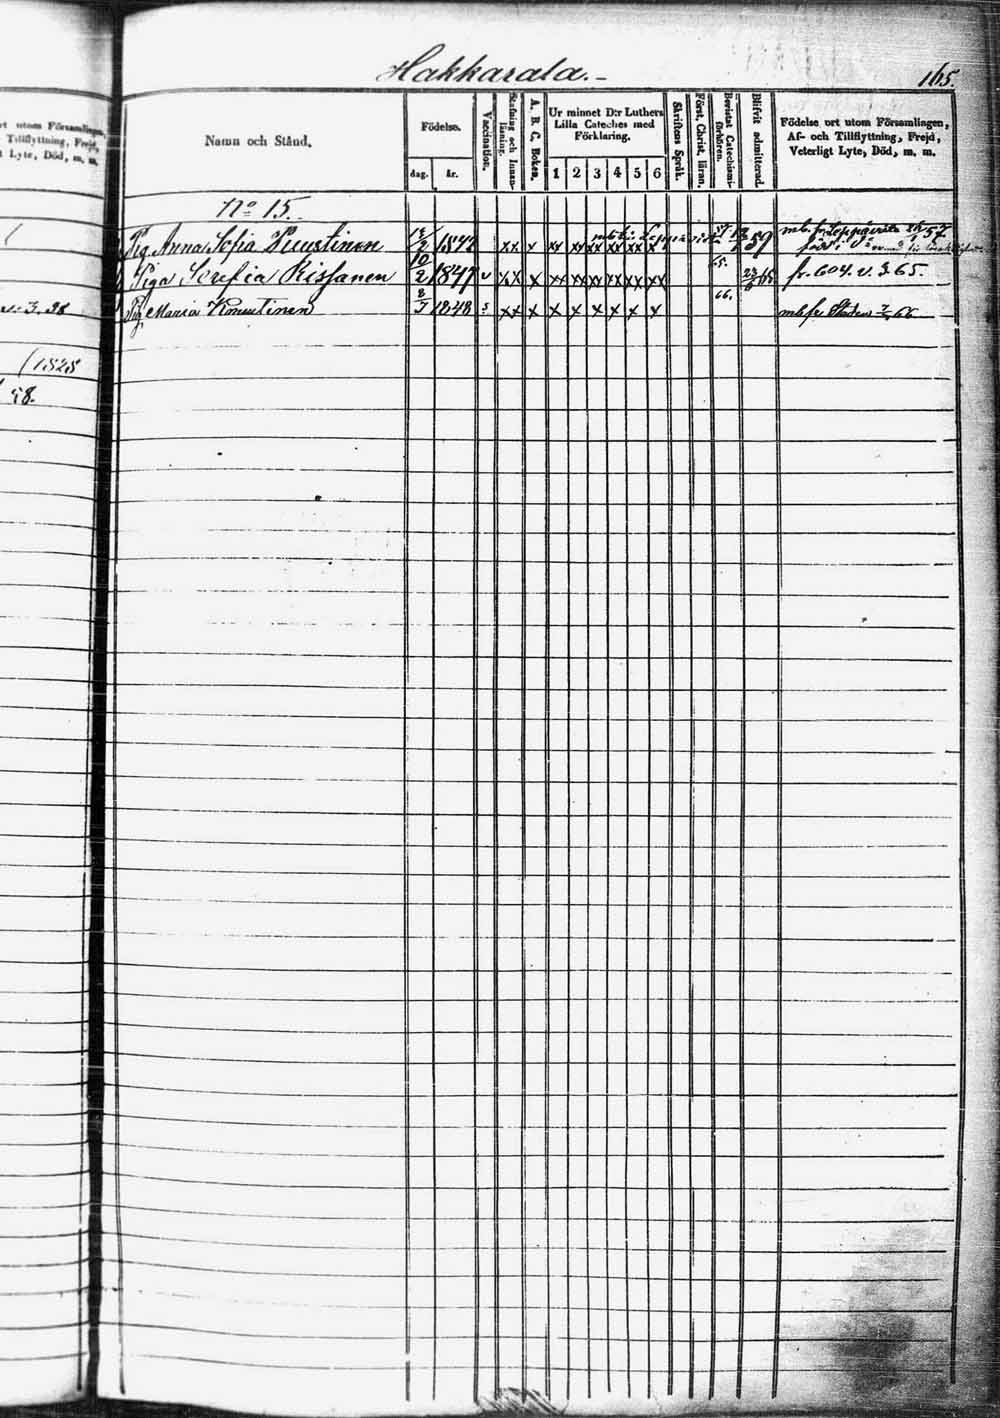 Hakkarala.-
165.
Namn och Stånd.
Födelse.
dag.
år.
Vaccination.
Stafning och Innanläsning.
A. B. C. Boken.
Ur minnet D:r Luthers
Lilla Cateches med
Förklaring.
1 2 3 4 5 6
Skriftens Språk.
Först. Christ. läran.
Bevistat Catechismi-
förhören.
Blifvit admitterad.
Födelse ort utom Församlingen,
Af- och Tillflyttning, Frejd,
Veterligt Lyte, Död, m. m.
No 15.
Pig. Anna Sofia Puustinen 1842 xx x xx xx xx xx xx x 59 mb. fr. Leppävirta 57
Piga Serafia Rissanen 10/2 1847 v xx x xx xx xx xx xx xx 65. fr. 604. v. 3. 65.
Pig. Maria Konuttinen 1848 s xx x x x x x x x 66. mb fr 66
ort utom Församlingen,
Tillflyttning, Frejd,
t Lyte, Död, m. m.
v. 3. 38
(1828
58.